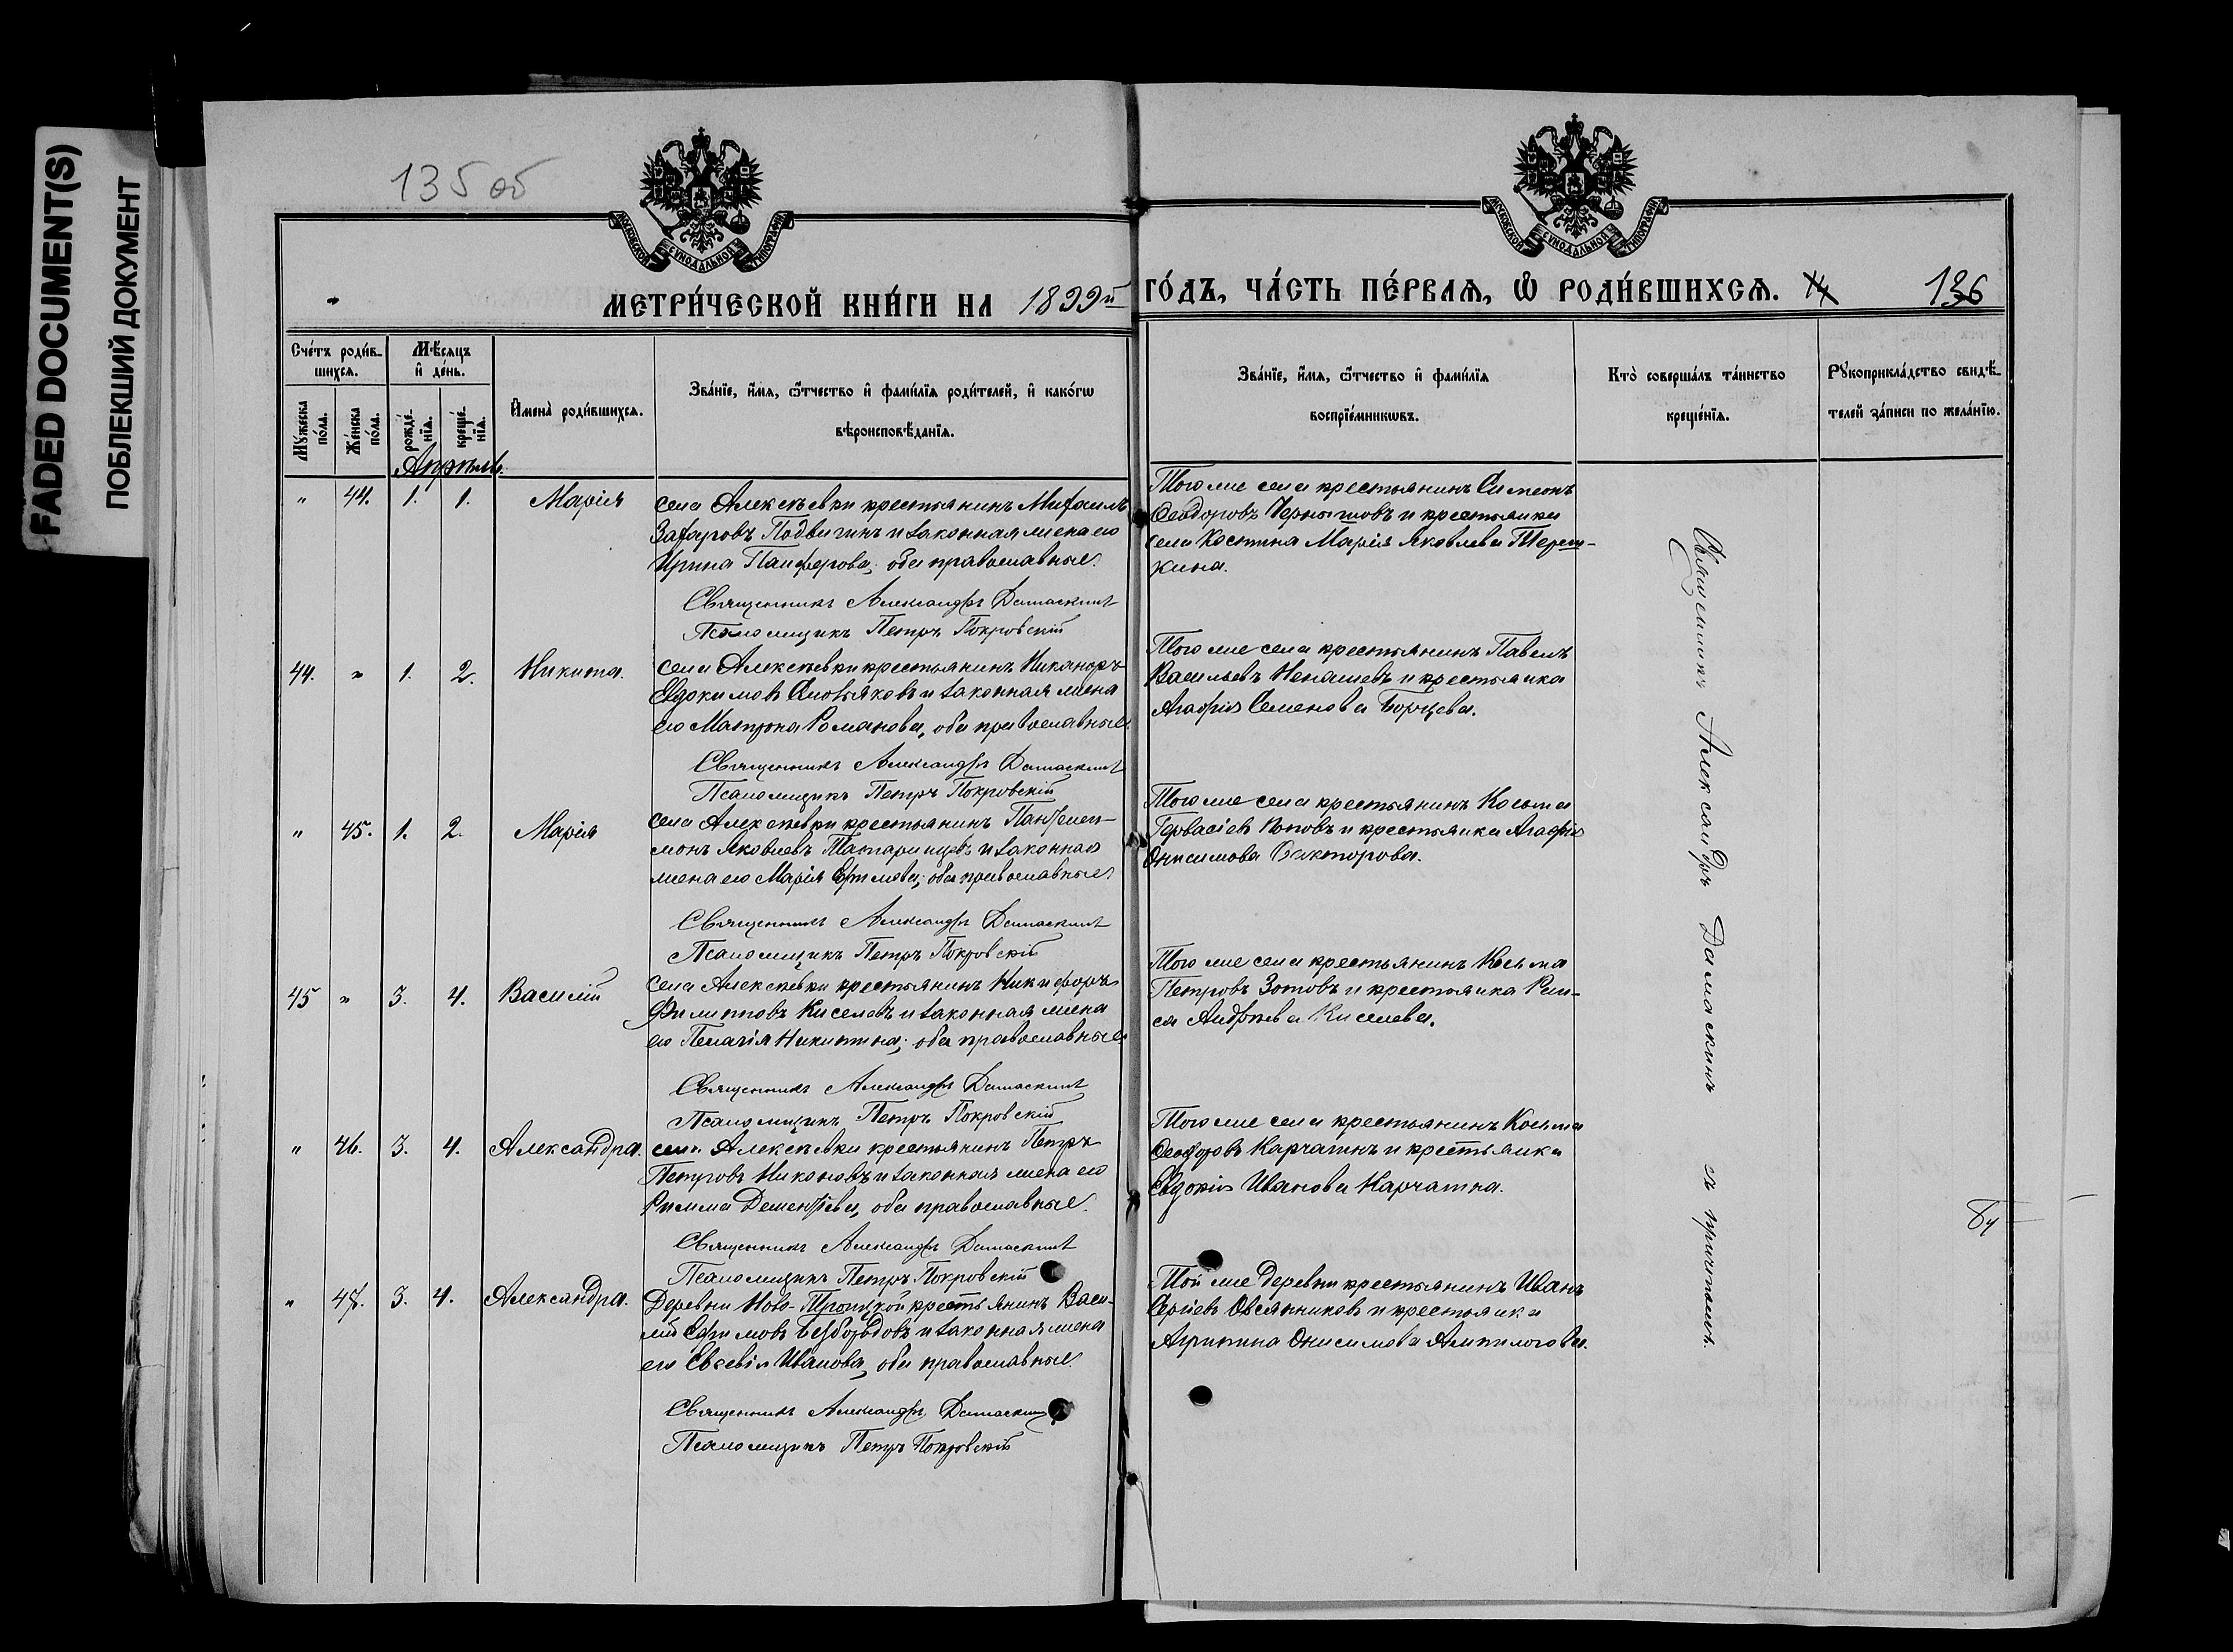 FADED DOCUMENT(S)
ПОБЛЕКШИЙ ДОКУМЕНТ
135 об
МОСКОВСКОЙ СУНОДАЛЬНОЙ ТИПОГРАФІИ
МОСКОВСКОЙ СУНОДАЛЬНОЙ ТИПОГРАФІИ
МЕТРИ́ЧЕСКОЙ КНИ́ГИ НА 1899й ГО́ДЪ, ЧА́СТЬ ПЕ́РВАЯ, Ѡ РОДИ́ВШИХСЯ.
136
Сче́тъ роди́в-
шихся.
Мѣ́сяцъ
и҆ де́нь.
Мꙋ́жеска
по́ла.
Же́нска
по́ла.
рожде́-
нїя.
креще́-
нїя.
И҆мена̀ роди́вшихся.
Зва́нїе, и҆́мя, ѻ҆́тчество и҆ фами́лїя роди́телей, и҆ како́гѡ
вѣроисповѣ́данїя.
Зва́нїе, и҆́мя, ѻ҆́тчество и҆ фами́лїя
воспрїе́мникѡвъ.
Кто̀ соверша́лъ та́инство
креще́нїя.
Рꙋкоприкла́дство свидѣ́-
телей за́писи по жела́нїю.
Апрѣль.
" 44. 1. 1. Марія
села Алексѣевки крестьянинъ Михаилъ
Захаровъ Подвигинъ и законная жена его
Ирина Панферова; оба православные.
Священникъ Александръ Дамаскинъ
Псаломщикъ Петръ Покровскій
Того же села крестьянинъ Симеонъ
Ѳеодоровъ Чернышовъ и крестьянка
села Костина Марія Яковлева Тереш-
кина.
44. " 1. 2. Никита.
села Алексѣевки крестьянинъ Никаноръ
Евдокимовъ и законная жена
его Матрона Романова, оба православные.
Священникъ Александръ Дамаскинъ
Псаломщикъ Петръ Покровскій
Того же села крестьянинъ Павелъ
Васильевъ Ненашевъ и крестьянка
Агафія Семенова Борцева.
" 45. 1. 2. Марія
села Алексѣевки крестьянинъ Пантелеи-
монъ Яковлевъ Татаринцевъ и законная
жена его Марія; оба православные.
Священникъ Александръ Дамаскинъ
Псаломщикъ Петръ Покровскій
Того же села крестьянинъ Косьма
Гервасіевъ Поповъ и крестьянка Агафія
Онисимова
45 " 3. 4. Василій
села Алексѣевки крестьянинъ Никифоръ
Филипповъ Киселевъ и законная жена
его Пелагія Никитина; оба православные.
Священникъ Александръ Дамаскинъ
Псаломщикъ Петръ Покровскій
Того же села крестьянинъ Косьма
Петровъ Зотовъ и крестьянка Раи-
са Андреева Киселева.
" 46. 3. 4. Александра.
села Алексѣевки крестьянинъ Петръ
Петровъ Никоновъ и законная жена его
Римма Дементіева, оба православные.
Священникъ Александръ Дамаскинъ
Псаломщикъ Петръ Покровскій
Того же села крестьянинъ Косьма
Ѳеодоровъ Карчагинъ и крестьянка
Евдокія Иванова Карчагина.
" 47. 3. 4. Александра.
Деревни Ново-Троицкой крестьянинъ Васи-
лій Ефимовъ Безбородовъ и законная жена
его Евсевія Иванова, оба православные.
Священникъ Александръ Дамаскинъ
Псаломщикъ Петръ Покровскій
Той же деревни крестьянинъ Иванъ
Сергіевъ Овсянниковъ и крестьянка
Агрипина Онисимова Ампилогова.
Священникъ Александръ Дамаскинъ съ причтомъ.